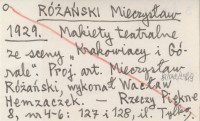 RÓŻAŃSKI Mieczysław
1929. Makiety teatralne
ze sceny "Krakowiacy i Gó-
rale": Prof. art. Mieczysław
Różański, wykonał Wacław
Hemzaczek. — Rzeczy Piękne
8, nr 4-6: 127 i 128, il. Tylko